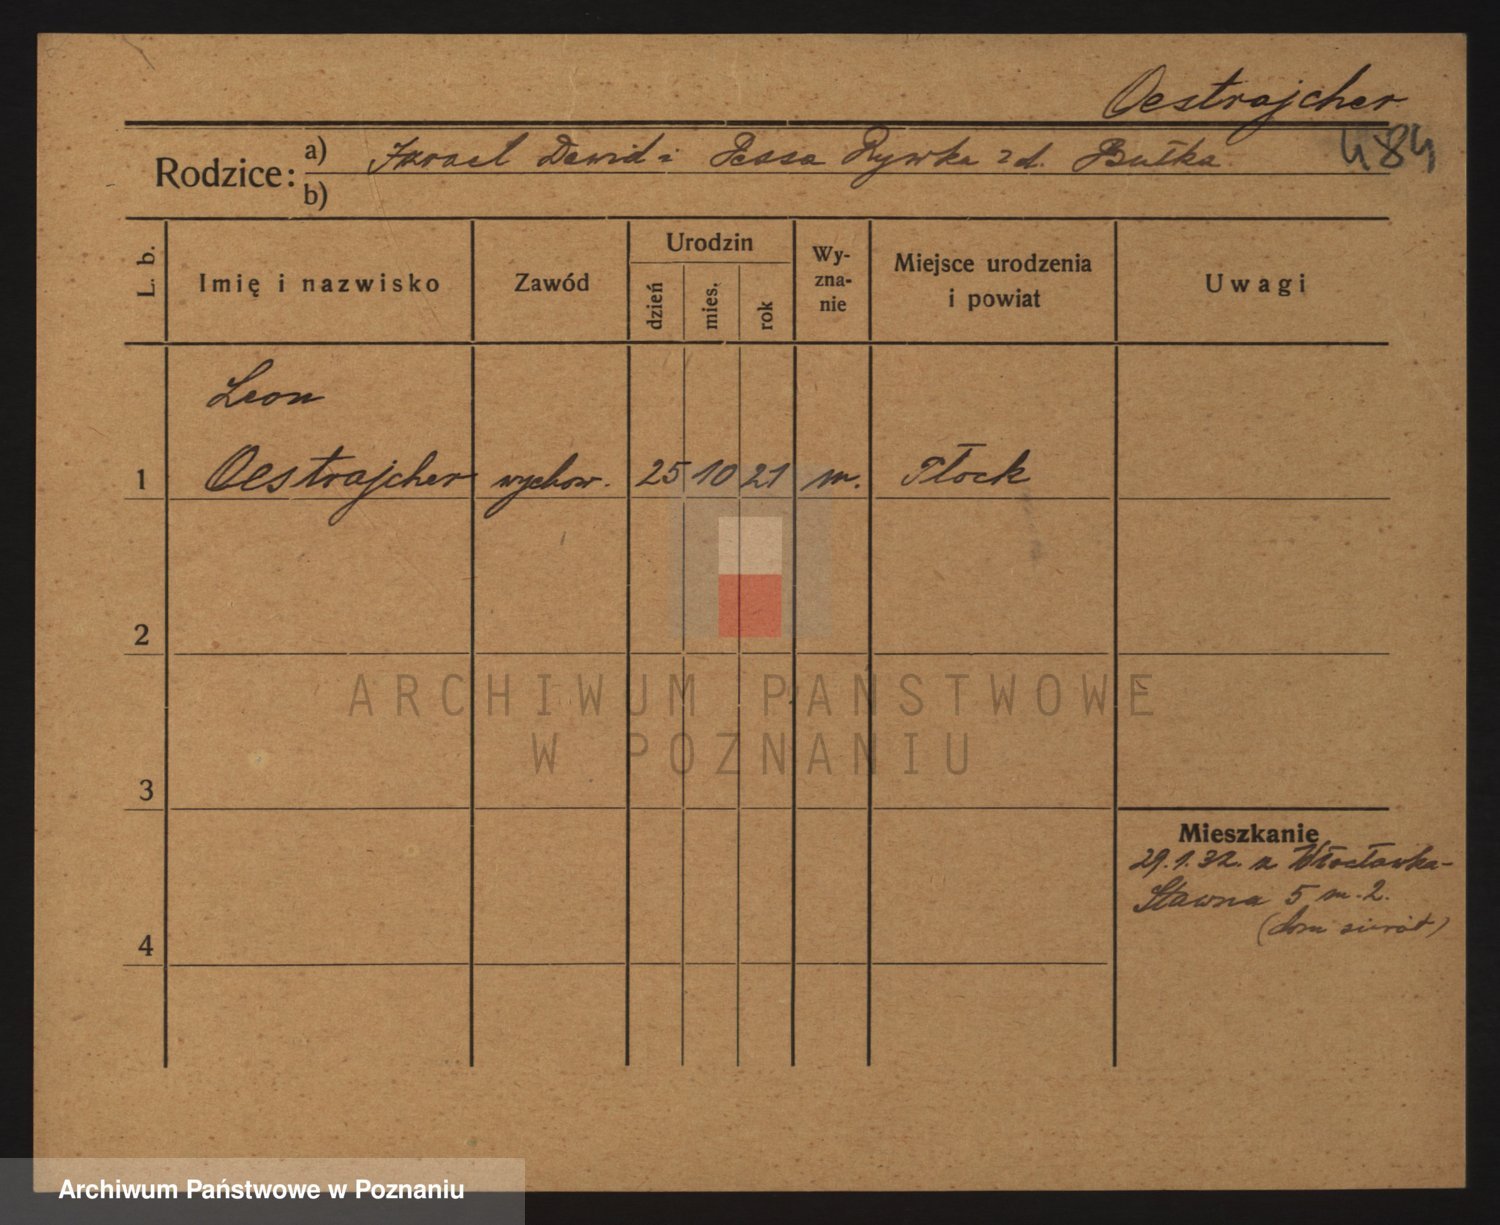 Oestrajcher
484
Rodzice: a) Izrael Dawid i Pessa Rywka z d. Bułka
b)
L. b. Imię i nazwisko Zawód Urodzin dzień mies. rok Wy-zna-nie Miejsce urodzenia i powiat Uwagi
Leon
1 Oestrajcher wychow. 25 10 21 m. Płock
2
ARCHIWUM PAŃSTWOWE
W POZNANIU
3
Mieszkanie
29.1.32. z Włocławka-
Stawna 5 m. 2.
(dom sierót)
4
Archiwum Państwowe w Poznaniu